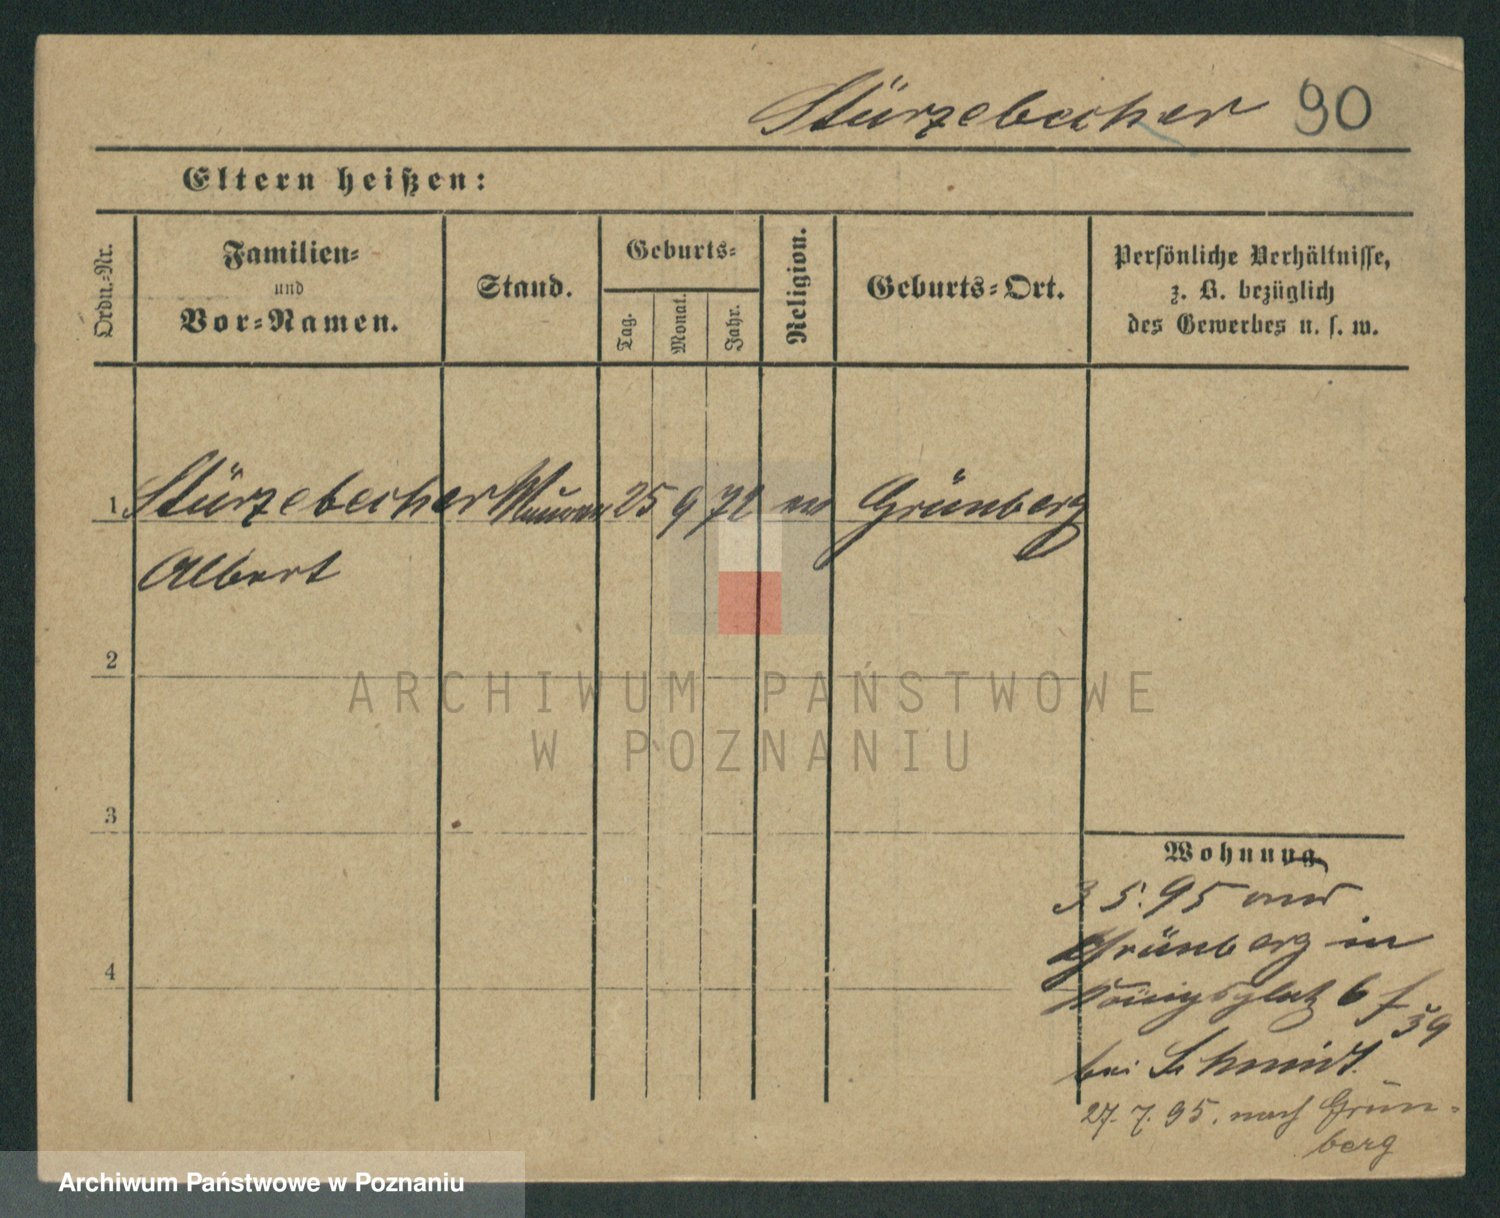 Stürzebecher 90
Eltern heißen:
Ordn.-Nr.
Familien-
und
Vor-Namen.
Stand.
Geburts-
Tag.
Monat.
Jahr.
Religion.
Geburts-Ort.
Persönliche Verhältnisse,
z. B. bezüglich
des Gewerbes u. s. w.
1 Stürzebecher Maurer 25 9 72 ev Grünberg
Albert
2
ARCHIWUM PAŃSTWOWE
W POZNANIU
3
Wohnung
3. 5. 95 aus
Grünberg in
4
Königsplatz 6
39
bei Schmidt.
27. 7. 95. nach Grün-
berg
Archiwum Państwowe w Poznaniu